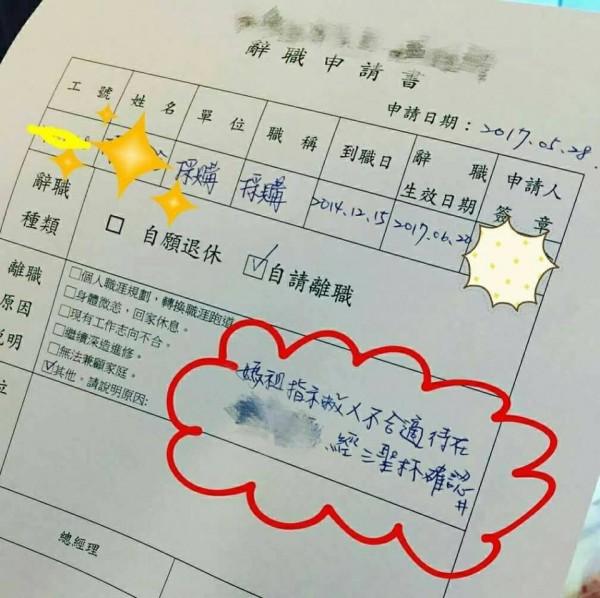 辭職申請書
申請日期：2017.05.28.
工號 姓名 單位 職稱 到職日 辭職生效日期 申請人簽章
採購 採購 2014.12.15 2017.06.20
辭職種類 □ 自願退休 ☑自請離職
離職原因說明
□個人職涯規劃，轉換職涯跑道
□身體微恙，回家休息。
□現有工作志向不合。
□繼續深造進修。
□無法兼顧家庭。
☑其他，請說明原因:
媽祖指示敝人不合適待在
經三聖杯確認#
位
總經理